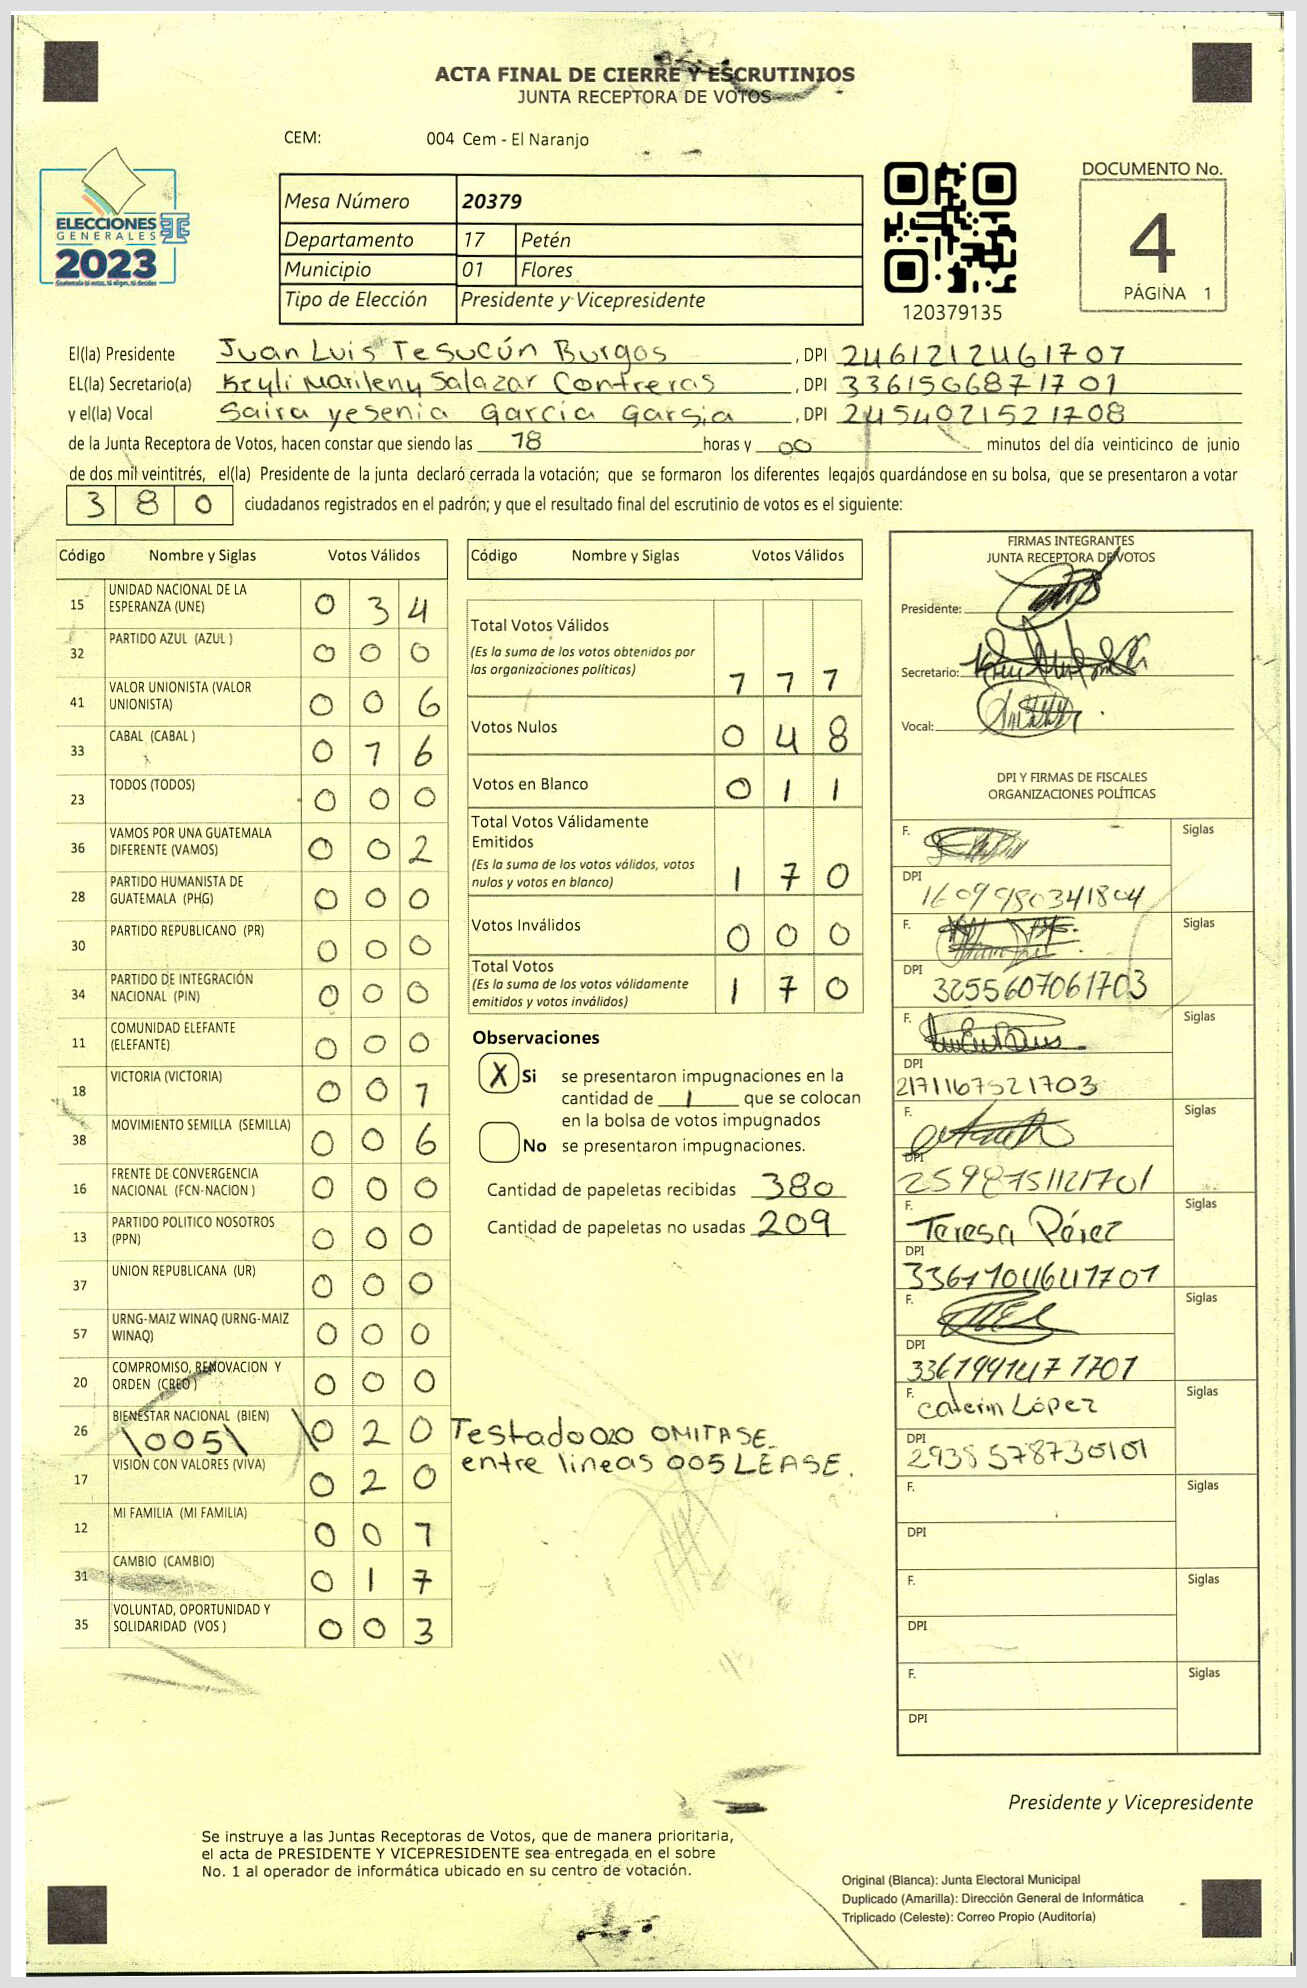 ACTA FINAL DE CIERRE Y ESCRUTINIOS
JUNTA RECEPTORA DE VOTOS
CEM: 004 Cem - El Naranjo
ELECCIONES
GENERALES
2023
Guatemala tú votas, tú eliges, tú decides
Mesa Número 20379
Departamento 17 Petén
Municipio 01 Flores
Tipo de Elección Presidente y Vicepresidente
120379135
DOCUMENTO No.
4
PÁGINA 1
El(la) Presidente Juan Luis Tesucún Burgos, DPI 2461212461707
EL(la) Secretario(a) Keyli Marileny Salazar Contreras, DPI 3361566871701
y el(la) Vocal Saira yesenia Garcia Garsia, DPI 2454021521708
de la Junta Receptora de Votos, hacen constar que siendo las 18 horas y 00 minutos del día veinticinco de junio
de dos mil veintitrés, el(la) Presidente de la junta declaró cerrada la votación; que se formaron los diferentes legajos quardándose en su bolsa, que se presentaron a votar
380 ciudadanos registrados en el padrón; y que el resultado final del escrutinio de votos es el siguiente:
Código Nombre y Siglas Votos Válidos
15 UNIDAD NACIONAL DE LA ESPERANZA (UNE) 0 3 4
32 PARTIDO AZUL (AZUL ) 0 0 0
41 VALOR UNIONISTA (VALOR UNIONISTA) 0 0 6
33 CABAL (CABAL ) 0 1 6
23 TODOS (TODOS) 0 0 0
36 VAMOS POR UNA GUATEMALA DIFERENTE (VAMOS) 0 0 2
28 PARTIDO HUMANISTA DE GUATEMALA (PHG) 0 0 0
30 PARTIDO REPUBLICANO (PR) 0 0 0
34 PARTIDO DE INTEGRACIÓN NACIONAL (PIN) 0 0 0
11 COMUNIDAD ELEFANTE (ELEFANTE) 0 0 0
18 VICTORIA (VICTORIA) 0 0 1
38 MOVIMIENTO SEMILLA (SEMILLA) 0 0 6
16 FRENTE DE CONVERGENCIA NACIONAL (FCN-NACION ) 0 0 0
13 PARTIDO POLITICO NOSOTROS (PPN) 0 0 0
37 UNION REPUBLICANA (UR) 0 0 0
57 URNG-MAIZ WINAQ (URNG-MAIZ WINAQ) 0 0 0
20 COMPROMISO, RENOVACION Y ORDEN (CREO ) 0 0 0
26 BIENESTAR NACIONAL (BIEN) \005\ \0 2 0 Testado 020 OMITASE.
entre lineas 005 LEASE.
17 VISION CON VALORES (VIVA) 0 2 0
12 MI FAMILIA (MI FAMILIA) 0 0 1
31 CAMBIO (CAMBIO) 0 1 7
35 VOLUNTAD, OPORTUNIDAD Y SOLIDARIDAD (VOS ) 0 0 3
Código Nombre y Siglas Votos Válidos
Total Votos Válidos
(Es la suma de los votos obtenidos por
las organizaciones políticas) 1 1 1
Votos Nulos 0 4 8
Votos en Blanco 0 1 1
Total Votos Válidamente
Emitidos
(Es la suma de los votos válidos, votos
nulos y votos en blanco) 1 7 0
Votos Inválidos 0 0 0
Total Votos
(Es la suma de los votos válidamente
emitidos y votos inválidos) 1 7 0
Observaciones
X Si se presentaron impugnaciones en la
cantidad de 1 que se colocan
en la bolsa de votos impugnados
No se presentaron impugnaciones.
Cantidad de papeletas recibidas 380
Cantidad de papeletas no usadas 209
FIRMAS INTEGRANTES
JUNTA RECEPTORA DE VOTOS
Presidente:
Secretario:
Vocal:
DPI Y FIRMAS DE FISCALES
ORGANIZACIONES POLÍTICAS
F. Siglas
DPI 1609980341804
F. Siglas
DPI 3255607061703
F. Siglas
DPI 2171167521703
F. Siglas
DPI 2598751121701
F. Teresa Pérez Siglas
DPI
F. Siglas
DPI
F. Caterin López Siglas
DPI 2938578730101
F. Siglas
DPI
F. Siglas
DPI
F. Siglas
DPI
Presidente y Vicepresidente
Se instruye a las Juntas Receptoras de Votos, que de manera prioritaria,
el acta de PRESIDENTE Y VICEPRESIDENTE sea entregada en el sobre
No. 1 al operador de informática ubicado en su centro de votación.
Original (Blanca): Junta Electoral Municipal
Duplicado (Amarilla): Dirección General de Informática
Triplicado (Celeste): Correo Propio (Auditoría)